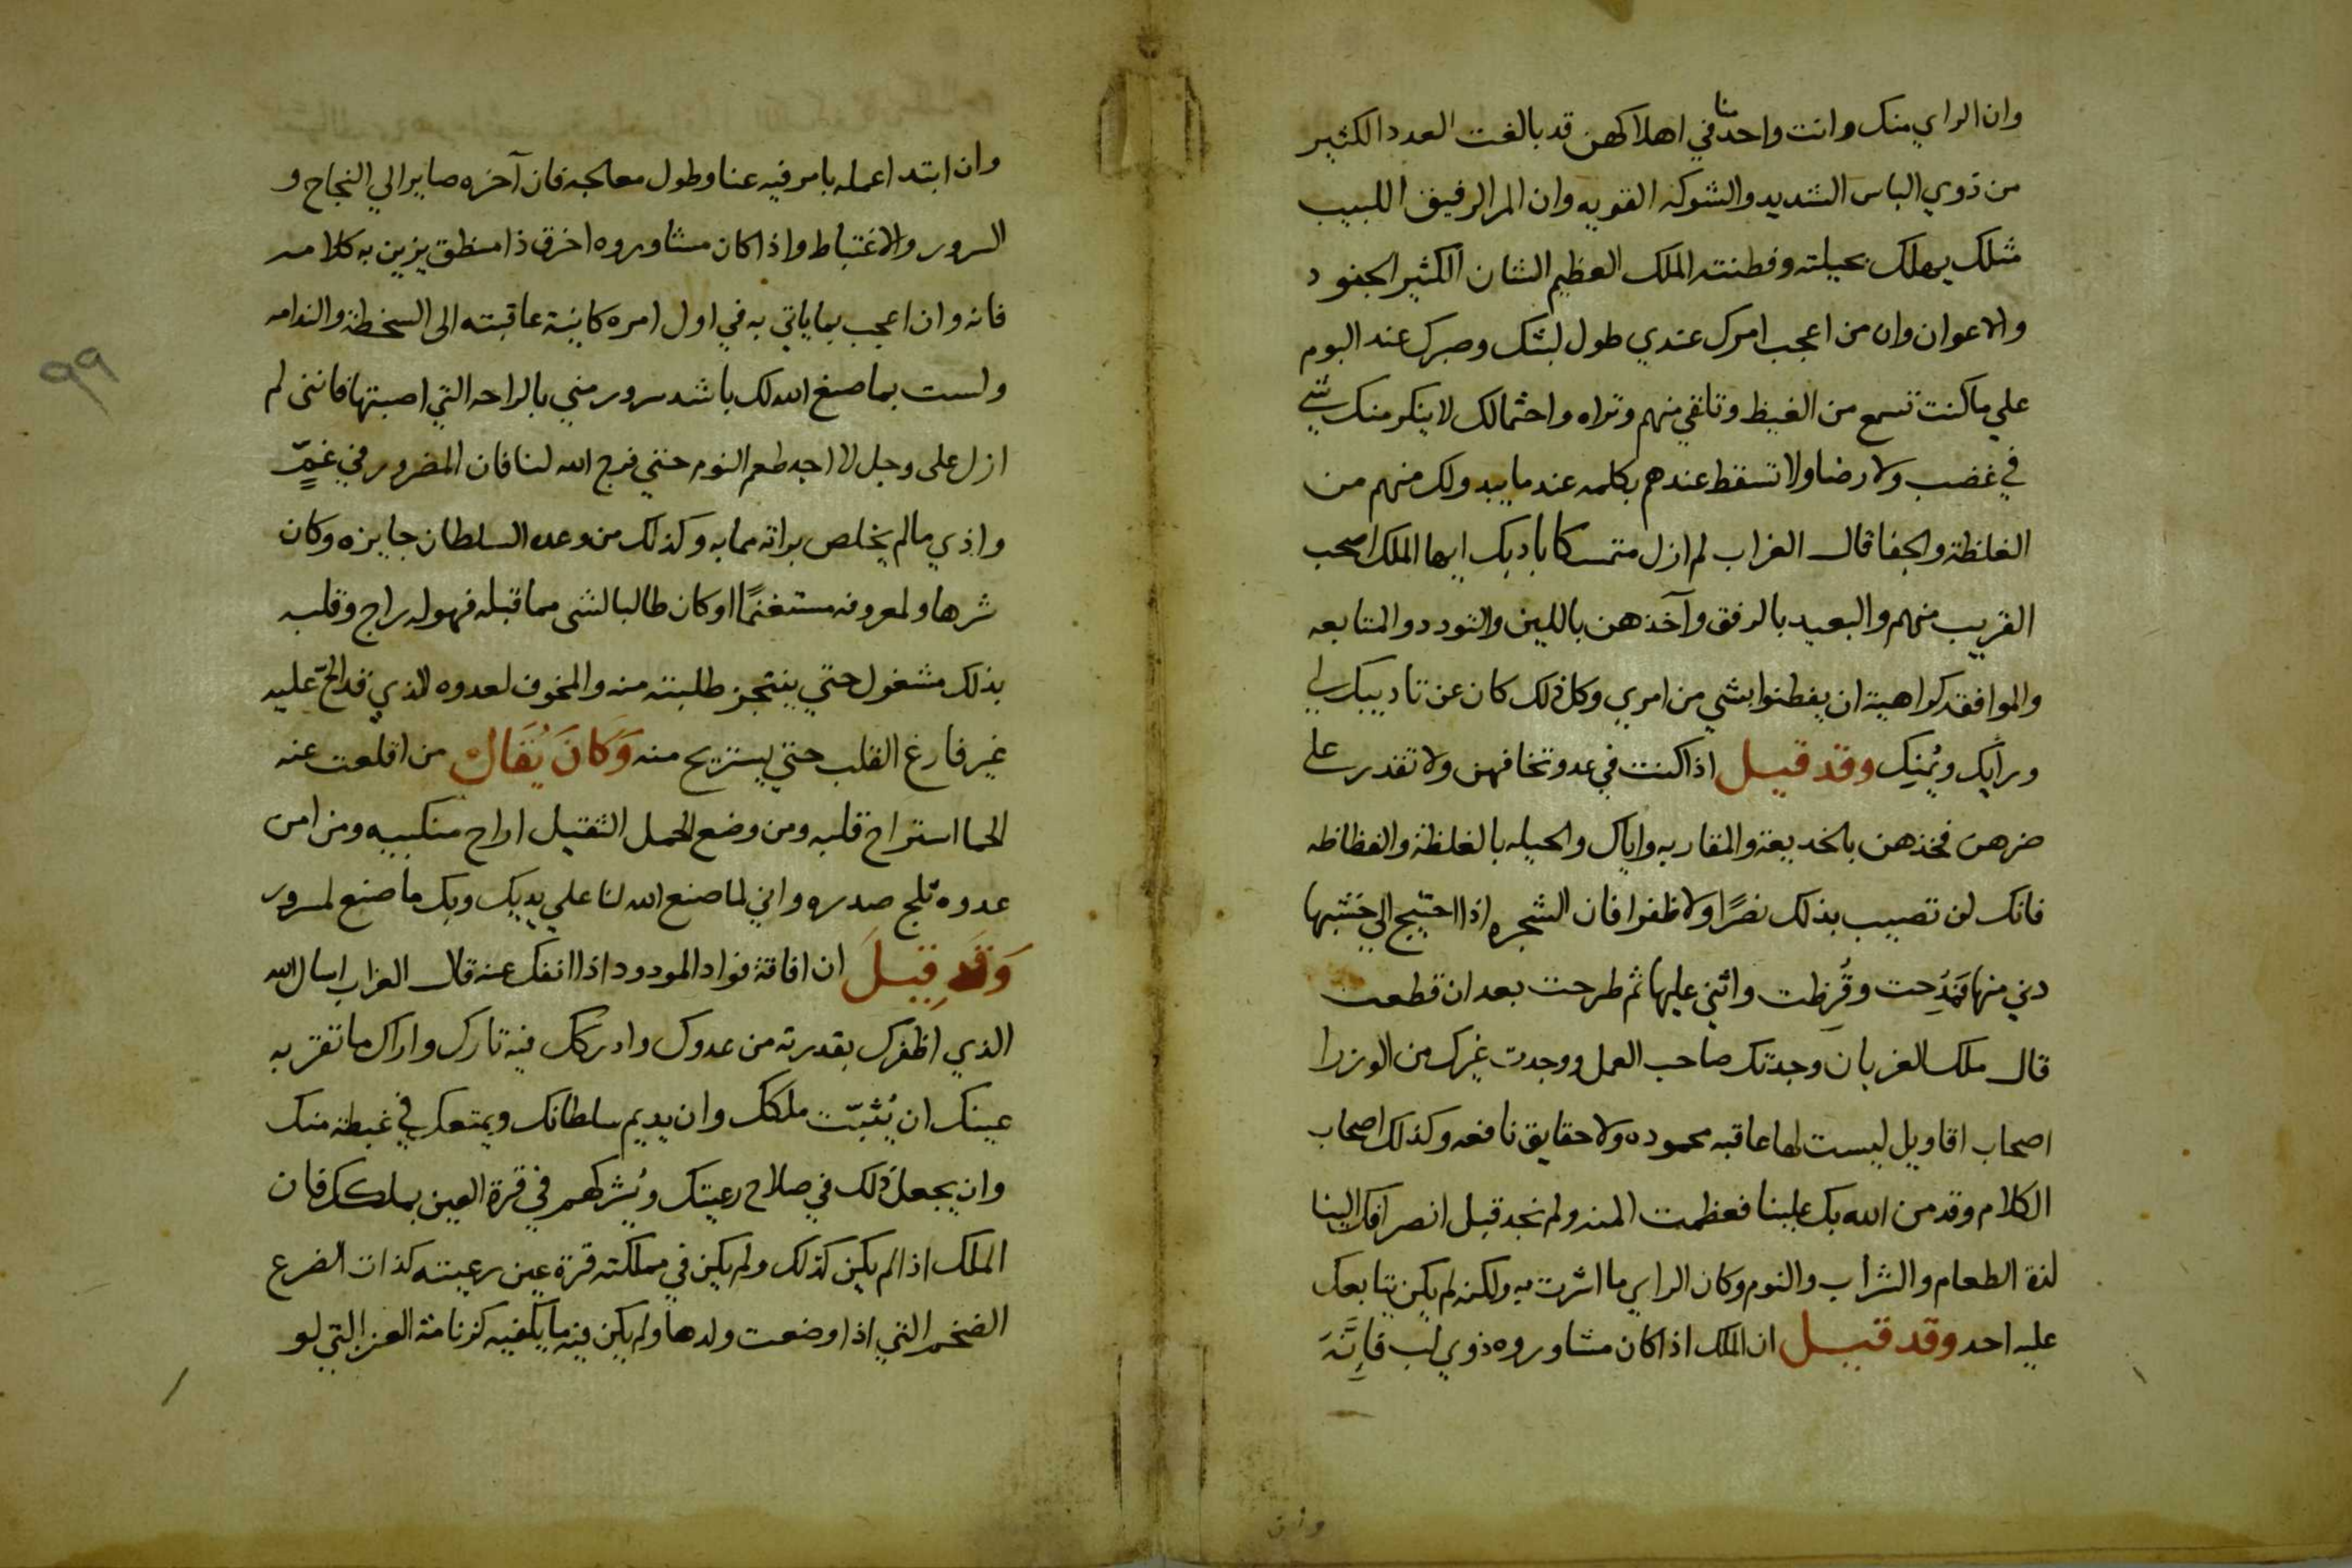 وان الراي منك وانت واحد منا في اهلاكهن قد بالغت العدد الكثير
من ذوي الباس الشديد والشوكه القويه وان المر الرفيق اللبيب
مثلك يهلك بحيلته وفطنته الملك العظيم الشان الكثير الجنود
والاعوان وان من اعجب امرك عندي طول لبثك وصبرك عند البوم
علي ما كنت تسمع من الغيظ وتلقي منهم وتراه واحتمالك لا ينكر منك شي
في غضب ولا رضا ولا تسقط عندهم بكلمه عند ما يبد ولك منهم من
الغلظة والجفا قال الغراب لم ازل متمسكا بادبك ايها الملك اصحب
القريب منهم والبعيد بالرفق وآخذهن باللين والتودد والمتابعه
والموافقه كراهية ان يفطنوا بشي من امري وكل ذلك كان عن تاديبك لي
ورأيك ويُمنِك وقد قيل اذا كنت في عدو تخافهن ولا تقدر على
ضرهن فخذهن بالخديعة والمقاربه واياك والحيله بالغلظة والفظاظه
فانك لن تصيب بذلك نصرًا ولا ظفرا فان الشجره اذا احتيج الي خشبها
دني منها فمُدِحت وقُرِظت واثني عليها ثم طرحت بعد ان قطعت
قال ملك الغربان وجدتك صاحب العمل ووجدت غيرك من الوزرا
اصحاب اقاويل ليست لها عاقبه محموده ولا حقايق نافعه وكذلك اصحاب
الكلام وقد من الله بك علينا فعظمت المنه ولم نجد قبل انصرافك الينا
لذة الطعام والشراب والنوم وكان الراي ما اشرت به ولكنه لم يكن يتابعك
عليه احد وقد قيل ان الملك اذا كان مشاوروه ذوي لب فَاِنَّهُ
وان
وان ابتدا عمله بامر فيه عنا وطول معالجه فان آخره صاير الي النجاح و
السرور والاغتباط واذا كان مشاوروه اخرق ذا منطق يزين به كلامه
فانه وان اعجب بما ياتي به في اول امره كاينة عاقبته الى السخطة والندامه
ولست بما صنع الله لك باشد سرور مني بالراحه التي اصبتها فانني لم
ازل على وجل لا اجد طعم النوم حتي فرج الله لنا فان المضرور في غمٍّ
واذي ما لم يخلص براته مما به وكذلك من وعده السلطان جايزه وكان
شرها ولمعروفه مستغنمًا او كان طالبا لشي مما قبله فهو له راج وقلبه
بذلك مشغول حتي ينتجز طلبته منه والمخوف لعدوه الذي قد الحّ عليه
غير فارغ القلب حتي يستريح منه وَكَانَ يُقَال من اقلعت عنه
الحما استراح قلبه ومن وضع الحمل الثقيل اراح منكبيه ومن امن
عدوه ثلج صدره واني لما صنع الله لنا علي يديك وبك ما صنع لمسرور
وَقَد قِيلَ ان افاقة فواد المودود اذا انفك عنه قال الغراب اسال الله
الذي اظفرك بقدرته من عدوك وادركك فيه تارك واراك ما تقر به
عينك ان يُثبّت ملكك وان يديم سلطانك ويمتعك في غبطة منك
وان يجعل ذلك في صلاح رعيتك ويُشركهم في قرة العين بملكك فان
الملك اذا لم يكن كذلك ولم يكن في مملكته قرة عين رعيته كذات الضرع
الضخم التي اذا وضعت ولدها ولم يكن فيه ما يكفيه كزنامة العنز التي لو
٩٩